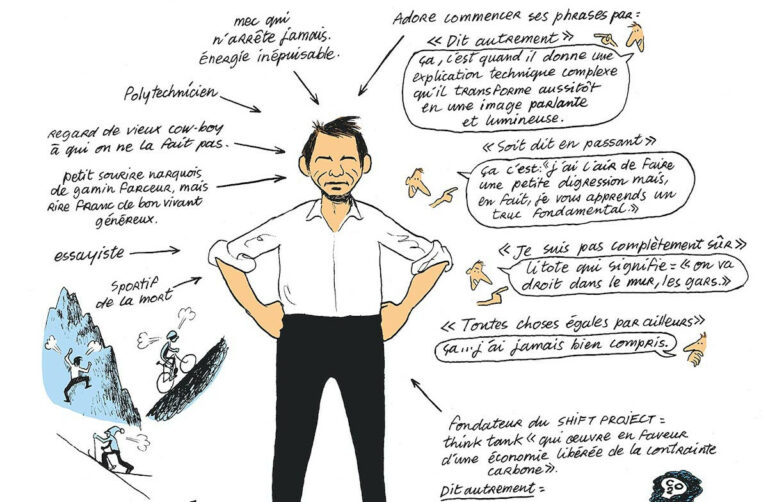 mec qui
n'arrête jamais.
énergie inépuisable.
Polytechnicien
regard de vieux cow-boy
à qui on ne la fait pas.
petit sourire narquois
de gamin farceur, mais
rire franc de bon vivant
généreux.
essayiste
sportif
de la mort
Adore commencer ses phrases par :
« Dit autrement »
ça, c'est quand il donne une
explication technique complexe
qu'il transforme aussitôt
en une image parlante
et lumineuse.
« Soit dit en passant »
ça c'est : « j'ai l'air de faire
une petite digression mais,
en fait, je vous apprends un
truc fondamental. »
« Je suis pas complètement sûr »
litote qui signifie = « on va
droit dans le mur, les gars. »
« Toutes choses égales par ailleurs »
ça... j'ai jamais bien compris.
fondateur du SHIFT PROJECT =
think tank « qui œuvre en faveur
d'une économie libérée de la contrainte
carbone ».
Dit autrement =
CO2